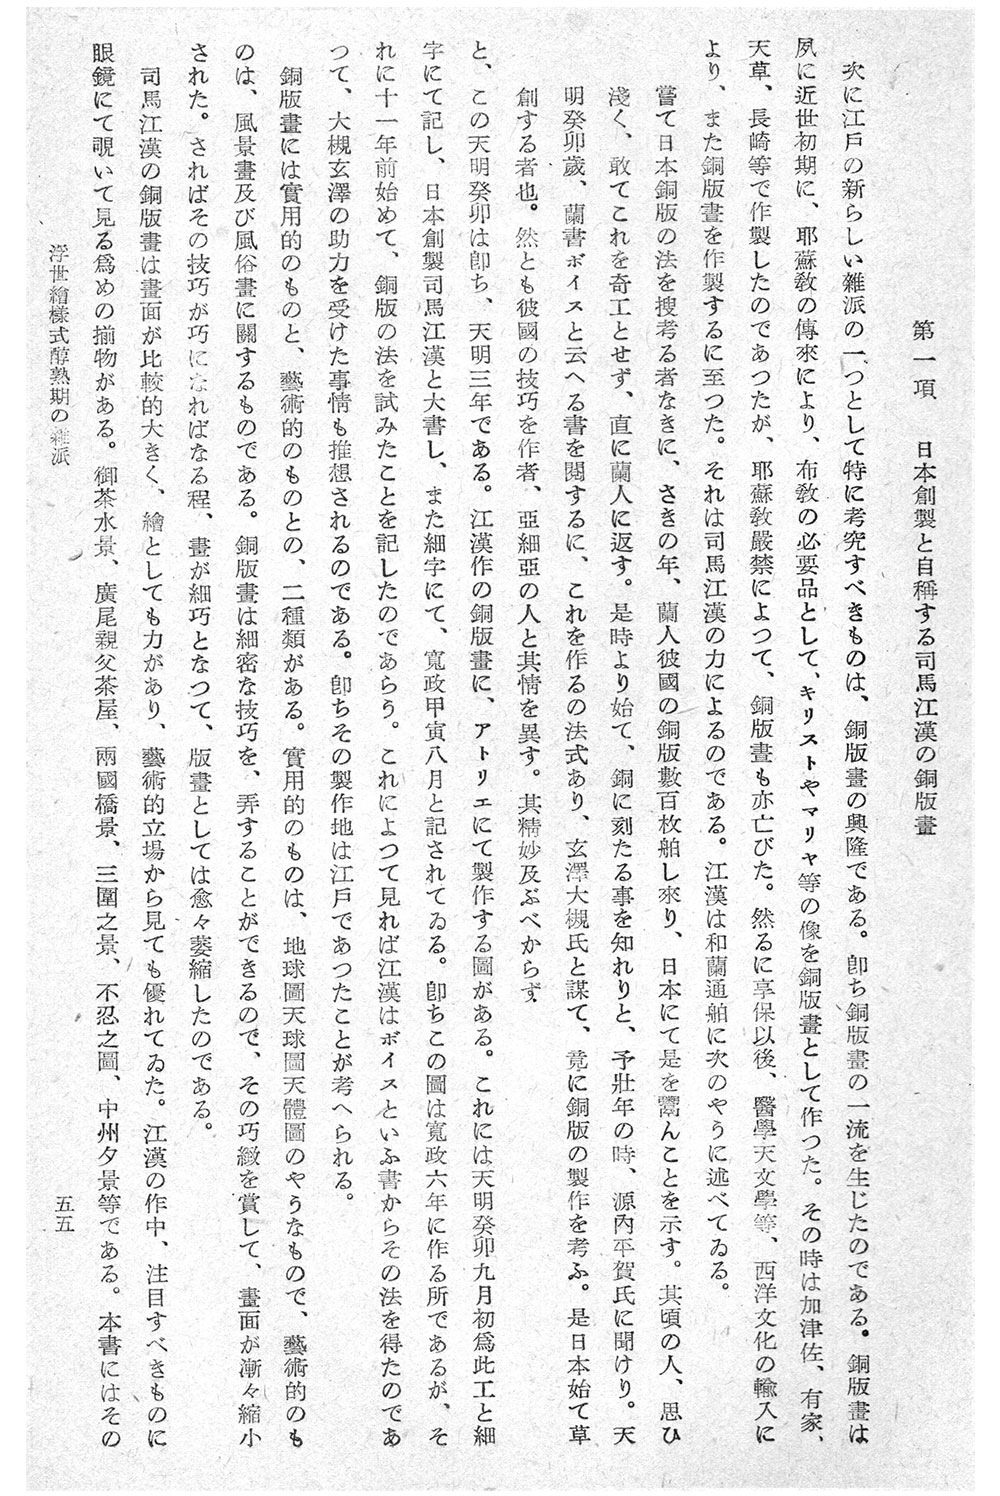 第一項　日本創製と自稱する司馬江漢の銅版畫
次に江戸の新らしい雜派の一つとして特に考究すべきものは、銅版畫の興隆である。卽ち銅版畫の一流を生じたのである。銅版畫は
夙に近世初期に、耶蘇敎の傳來により、布敎の必要品として、キリストやマリヤ等の像を銅版畫として作つた。その時は加津佐、有家、
天草、長崎等で作製したのであつたが、耶蘇敎嚴禁によつて、銅版畫も亦亡びた。然るに享保以後、醫學天文學等、西洋文化の輸入に
より、また銅版畫を作製するに至つた。それは司馬江漢の力によるのである。江漢は和蘭通舶に次のやうに述べてゐる。
嘗て日本銅版の法を搜考る者なきに、さきの年、蘭人彼國の銅版數百枚舶し來り、日本にて是を鬻んことを示す。其頃の人、思ひ
淺く、敢てこれを奇工とせず、直に蘭人に返す。是時より始て、銅に刻たる事を知れりと、予壯年の時、源內平賀氏に聞けり。天
明癸卯歲、蘭書ボイスと云へる書を閱するに、これを作るの法式あり、玄澤大槻氏と謀て、竟に銅版の製作を考ふ。是日本始て草
創する者也。然とも彼國の技巧を作者、亞細亞の人と其情を異す。其精妙及ぶべからず
と、この天明癸卯は卽ち、天明三年である。江漢作の銅版畫に、アトリエにて製作する圖がある。これには天明癸卯九月初爲此工と細
字にて記し、日本創製司馬江漢と大書し、また細字にて、寬政甲寅八月と記されてゐる。卽ちこの圖は寬政六年に作る所であるが、そ
れに十一年前始めて、銅版の法を試みたことを記したのであらう。これによつて見れば江漢はボイスといふ書からその法を得たのであ
つて、大槻玄澤の助力を受けた事情も推想されるのである。卽ちその製作地は江戸であつたことが考へられる。
銅版畫には實用的のものと、藝術的のものとの、二種類がある。實用的のものは、地球圖天球圖天體圖のやうなもので、藝術的のも
のは、風景畫及び風俗畫に關するものである。銅版畫は細密な技巧を、弄することができるので、その巧緻を賞して、畫面が漸々縮小
された。さればその技巧が巧になればなる程、畫が細巧となつて、版畫としては愈々萎縮したのである。
司馬江漢の銅版畫は畫面が比較的大きく、繪としても力があり、藝術的立場から見ても優れてゐた。江漢の作中、注目すべきものに
眼鏡にて覗いて見る爲めの揃物がある。御茶水景、廣尾親父茶屋、兩國橋景、三圍之景、不忍之圖、中州夕景等である。本書にはその
浮世繪樣式醇熟期の雜派
五五